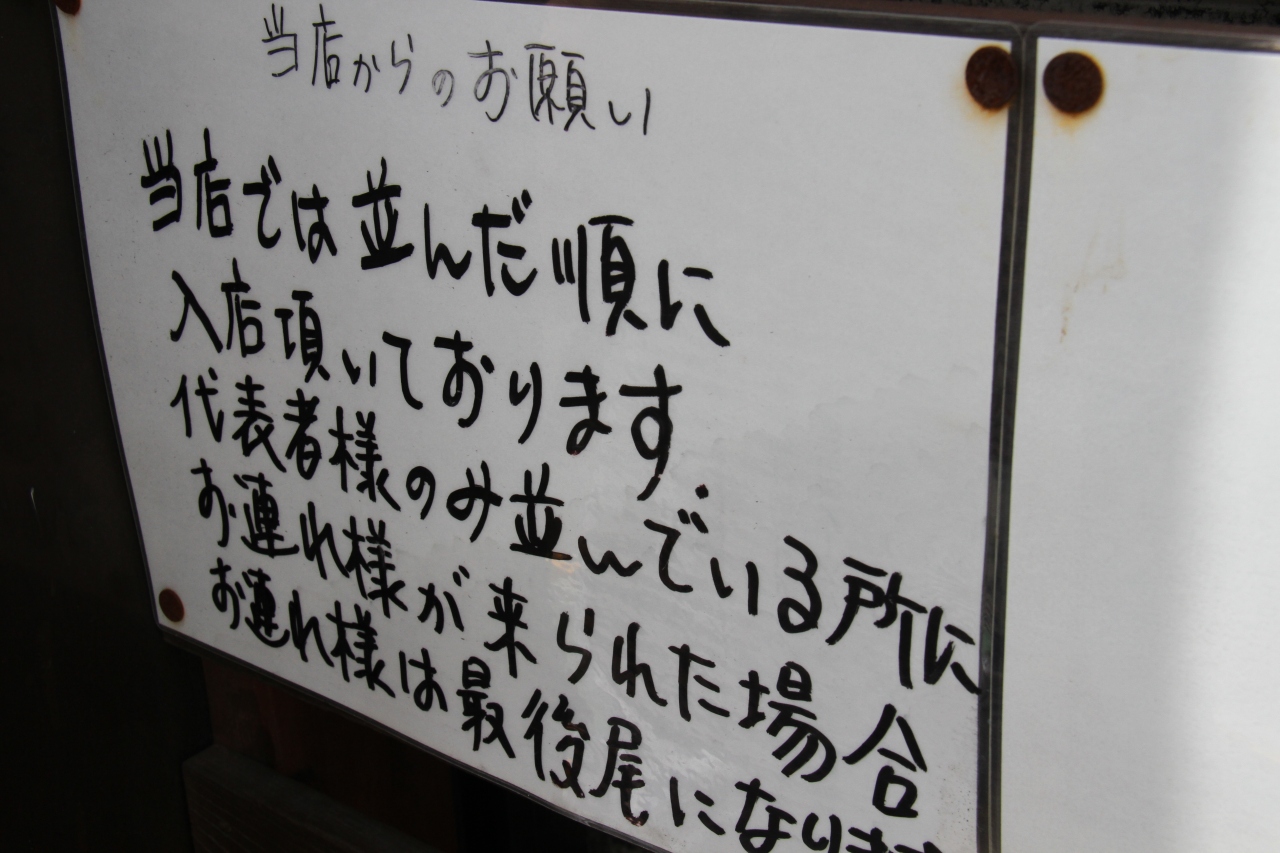 当店からのお願い
当店では並んだ順に
入店頂いております.
代表者様のみ並んでいる所に
お連れ様が来られた場合
お連れ様は最後尾になります